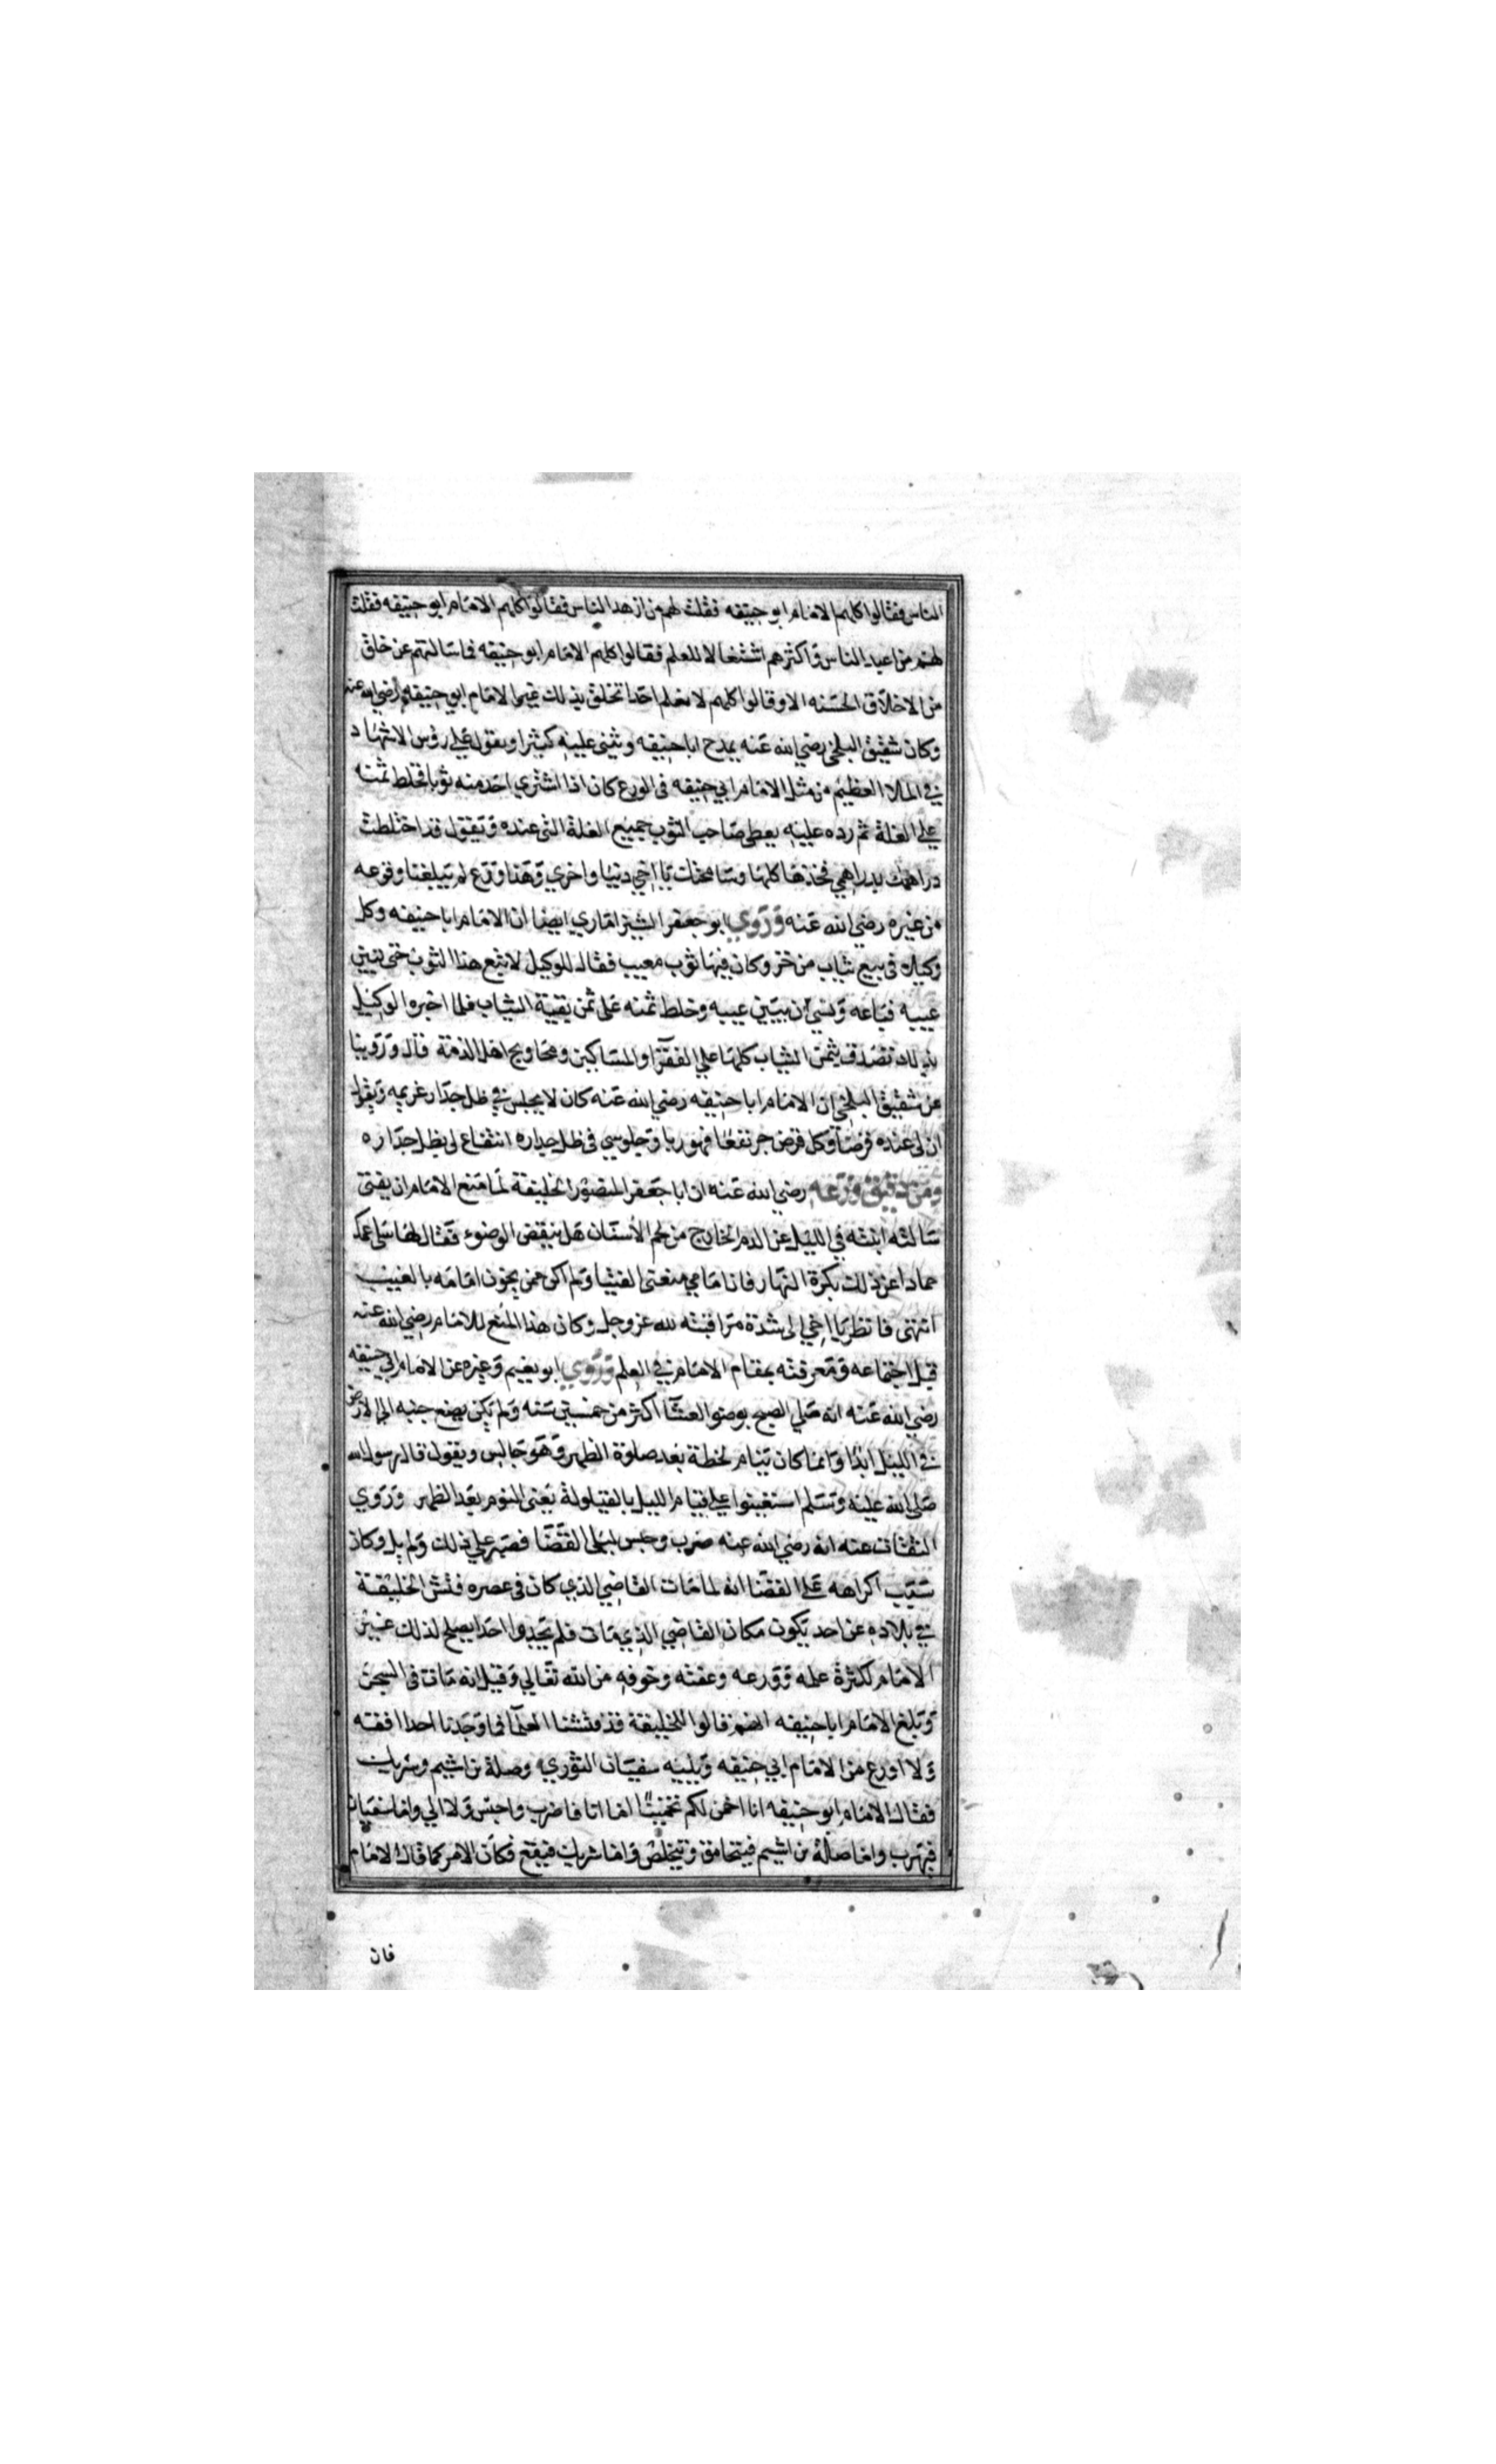 الناس فقالوا كلهم الامام ابو حنيفه فقلت لهم من ازهد الناس فقالوا كلهم الامام ابو حنيفه فقلت
لهم من اعبد الناس واكثرهم اشتغالا للعلم فقالوا كلهم الامام ابو حنيفه فما سالتهم عن خلق
من الاخلاق الحسنه الا وقالوا كلهم لا نعلم احدا تخلق بذلك غير الامام ابي حنيفه رضي الله عنه
وكان شقيق البلخي رضي الله عنه يمدح ابا حنيفه ويثني عليه كثيرا ويقول علي رؤس الاشهاد
في الملا العظيم من مثل الامام ابي حنيفه في الورع كان اذا اشتري احد منه ثوبا فخلط ثمنه
علي الغلة ثم رده عليه يعطي صاحب الثوب جميع الغلة التي عنده ويقول قد اختلطت
دراهمك بدراهمي فخذها كلها وسامحتك يا اخي دنيا واخري وهذا ورع لم يبلغنا وقوعه
من غيره رضي الله عنه وروي ابو جعفر الشيزاماري ايضا ان الامام ابا حنيفه وكل
وكيله في بيع ثياب من خز وكان فيها ثوب معيب فقال للوكيل لا تبع هذا الثوب حتي تبين
عيبه فباعه ونسي ان يبين عيبه وخلط ثمنه علي ثمن بقية الثياب فلما اخبره الوكيل
بذلك تصدق بثمن الثياب كلها علي الفقرآ والمساكين ومحاويج اهل الذمة قال وروينا
عن شقيق البلخي ان الامام ابا حنيفه رضي الله عنه كان لا يجلس في ظل جدار غريمه ويقول
ان لي عنده قرضا وكل قرض جر نفعا فهو ربا وجلوسي في ظل جداره انتفاع لي بظل جداره
ومن دقيق ورعه رضي الله عنه ان ابا جعفر المنصور الخليفة لما منع الامام ان يفتي
سالته ابنته في الليل عن الدم الخارج من لحم الاسنان هل ينقض الوضوء فقال لها سلي عمك
حمادا عن ذلك بكرة النهار فان امامي منعني الفتيا ولم اكن ممن يخون امامه بالغيب
انتهي فانظر يا اخي الي شدة مراقبته لله عز وجل وكان هذا المنع للامام رضي الله عنه
قبل اجتماعه ومعرفته بمقام الامام في العلم وروي ابو نعيم وغيره عن الامام ابي حنيفه
رضي الله عنه انه صلي الصبح بوضو العشآ اكثر من خمسين سنه ولم يكن يضع جنبه الي الارض
في الليل ابدا وانما كان ينام لحظة بعد صلوة الظهر وهو جالس ويقول قال رسول الله
صلي الله عليه وسلم استعينوا علي قيام الليل بالقيلولة يعني النوم بعد الظهر وروي
الثقات عنه انه رضي الله عنه ضرب وحبس ليلي القضا فصبر علي ذلك ولم يل وكان
سبب اكراهه علي القضا انه لما مات القاضي الذي كان في عصره فتش الخليفة
في بلاده عن احد يكون مكان القاضي الذي مات فلم يجدوا احدا يصلح لذلك غير
الامام لكثرة علمه وورعه وعفته وخوفه من الله تعالي وقيل انه مات في السجن
وبلغ الامام ابا حنيفه انهم قالوا للخليفة قد فتشنا العلمآ فما وجدنا احدا افقه
ولا اورع من الامام ابي حنيفه ويليه سفيان الثوري وصلة بن اشيم وشريك
فقال الامام ابو حنيفه انا اخمن لكم تخمينا اما انا فاضرب واحبس ولا الي واما سفيان
فيهرب واما صلة بن اشيم فيتحامق ويتخلص واما شريك فيقع فكان الامر كما قال الامام
فان